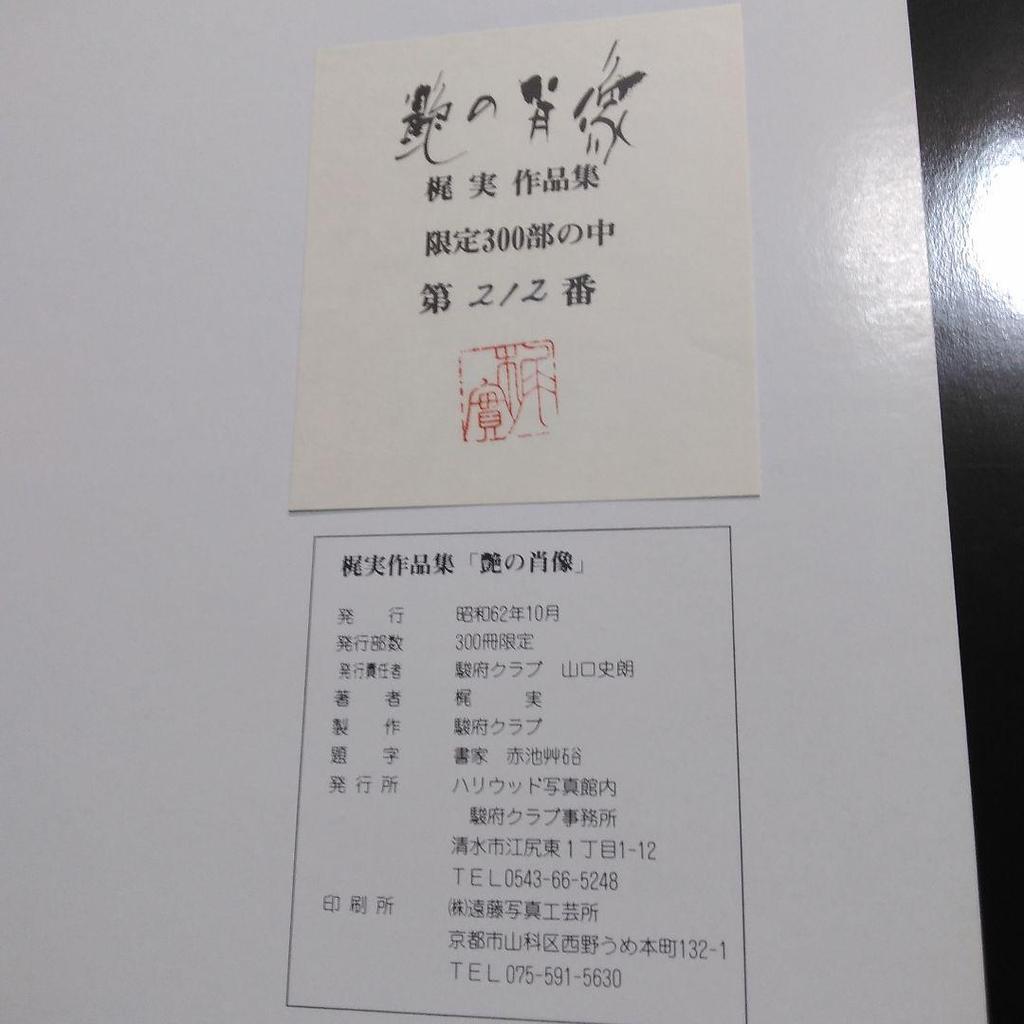 艶の肖像
梶 実 作品集
限定300部の中
第 212 番
梶實
梶実作品集「艶の肖像」
発 行 昭和62年10月
発行部数 300冊限定
発行責任者 駿府クラブ 山口史朗
著 者 梶 実
製 作 駿府クラブ
題 字 書家 赤池艸硲
発行所 ハリウッド写真館内
駿府クラブ事務所
清水市江尻東1丁目1-12
TEL0543-66-5248
印刷所 ㈱遠藤写真工芸所
京都市山科区西野うめ本町132-1
TEL075-591-5630